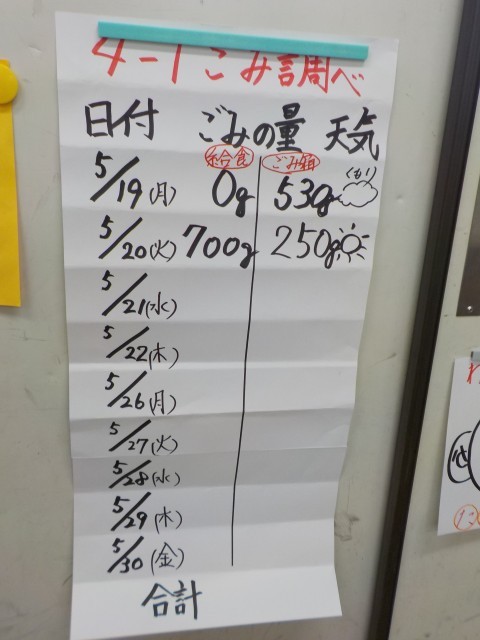 4-1 ごみ調べ
日付 ごみの量 天気
給食 ごみ箱
5/19(月) 0g 530g くもり
5/20(火) 700g 250g
5/21(水)
5/22(木)
5/26(月)
5/27(火)
5/28(水)
5/29(木)
5/30(金)
合計